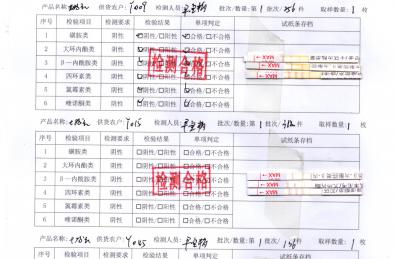 产品名称: 供货农户: Y009 检测人员: 批次/数量:第 1 批次/ 件 取样数量: 1 枚
序号 检验项目 检测要求 检验结果 单项判定 试纸条存档
1 磺胺类 阴性 ☑阴性/☐阳性 ☑合格/☐不合格
2 大环内酯类 阴性 ☑阴性/☐阳性 ☑合格/☐不合格
3 β－内酰胺类 阴性 阴性/☐阳性 合格/☐不合格
4 四环素类 阴性 阴性/☐阳性 合格/☐不合格
5 氯霉素类 阴性 阴性/☐阳性 合格/☐不合格
6 喹诺酮类 阴性 阴性/☐阳性 合格/☐不合格
检测合格
MAX
MAX
MAX
产品名称: 供货农户: Y015 检测人员: 批次/数量:第 1 批次/ 件 取样数量: 1 枚
序号 检验项目 检测要求 检验结果 单项判定 试纸条存档
1 磺胺类 阴性 ☐阴性/☐阳性 ☐合格/☐不合格
2 大环内酯类 阴性 ☐阴性/☐阳性 ☐合格/☐不合格
3 β－内酰胺类 阴性 ☐阴性/☐阳性 ☐合格/☐不合格
4 四环素类 阴性 ☐阴性/☐阳性 ☐合格/☐不合格
5 氯霉素类 阴性 ☐阴性/☐阳性 ☐合格/☐不合格
6 喹诺酮类 阴性 ☐阴性/☐阳性 ☐合格/☐不合格
检测合格
MAX
MAX
MAX
产品名称: 供货农户: 检测人员: 批次/数量:第 1 批次/ 件 取样数量: 1 枚